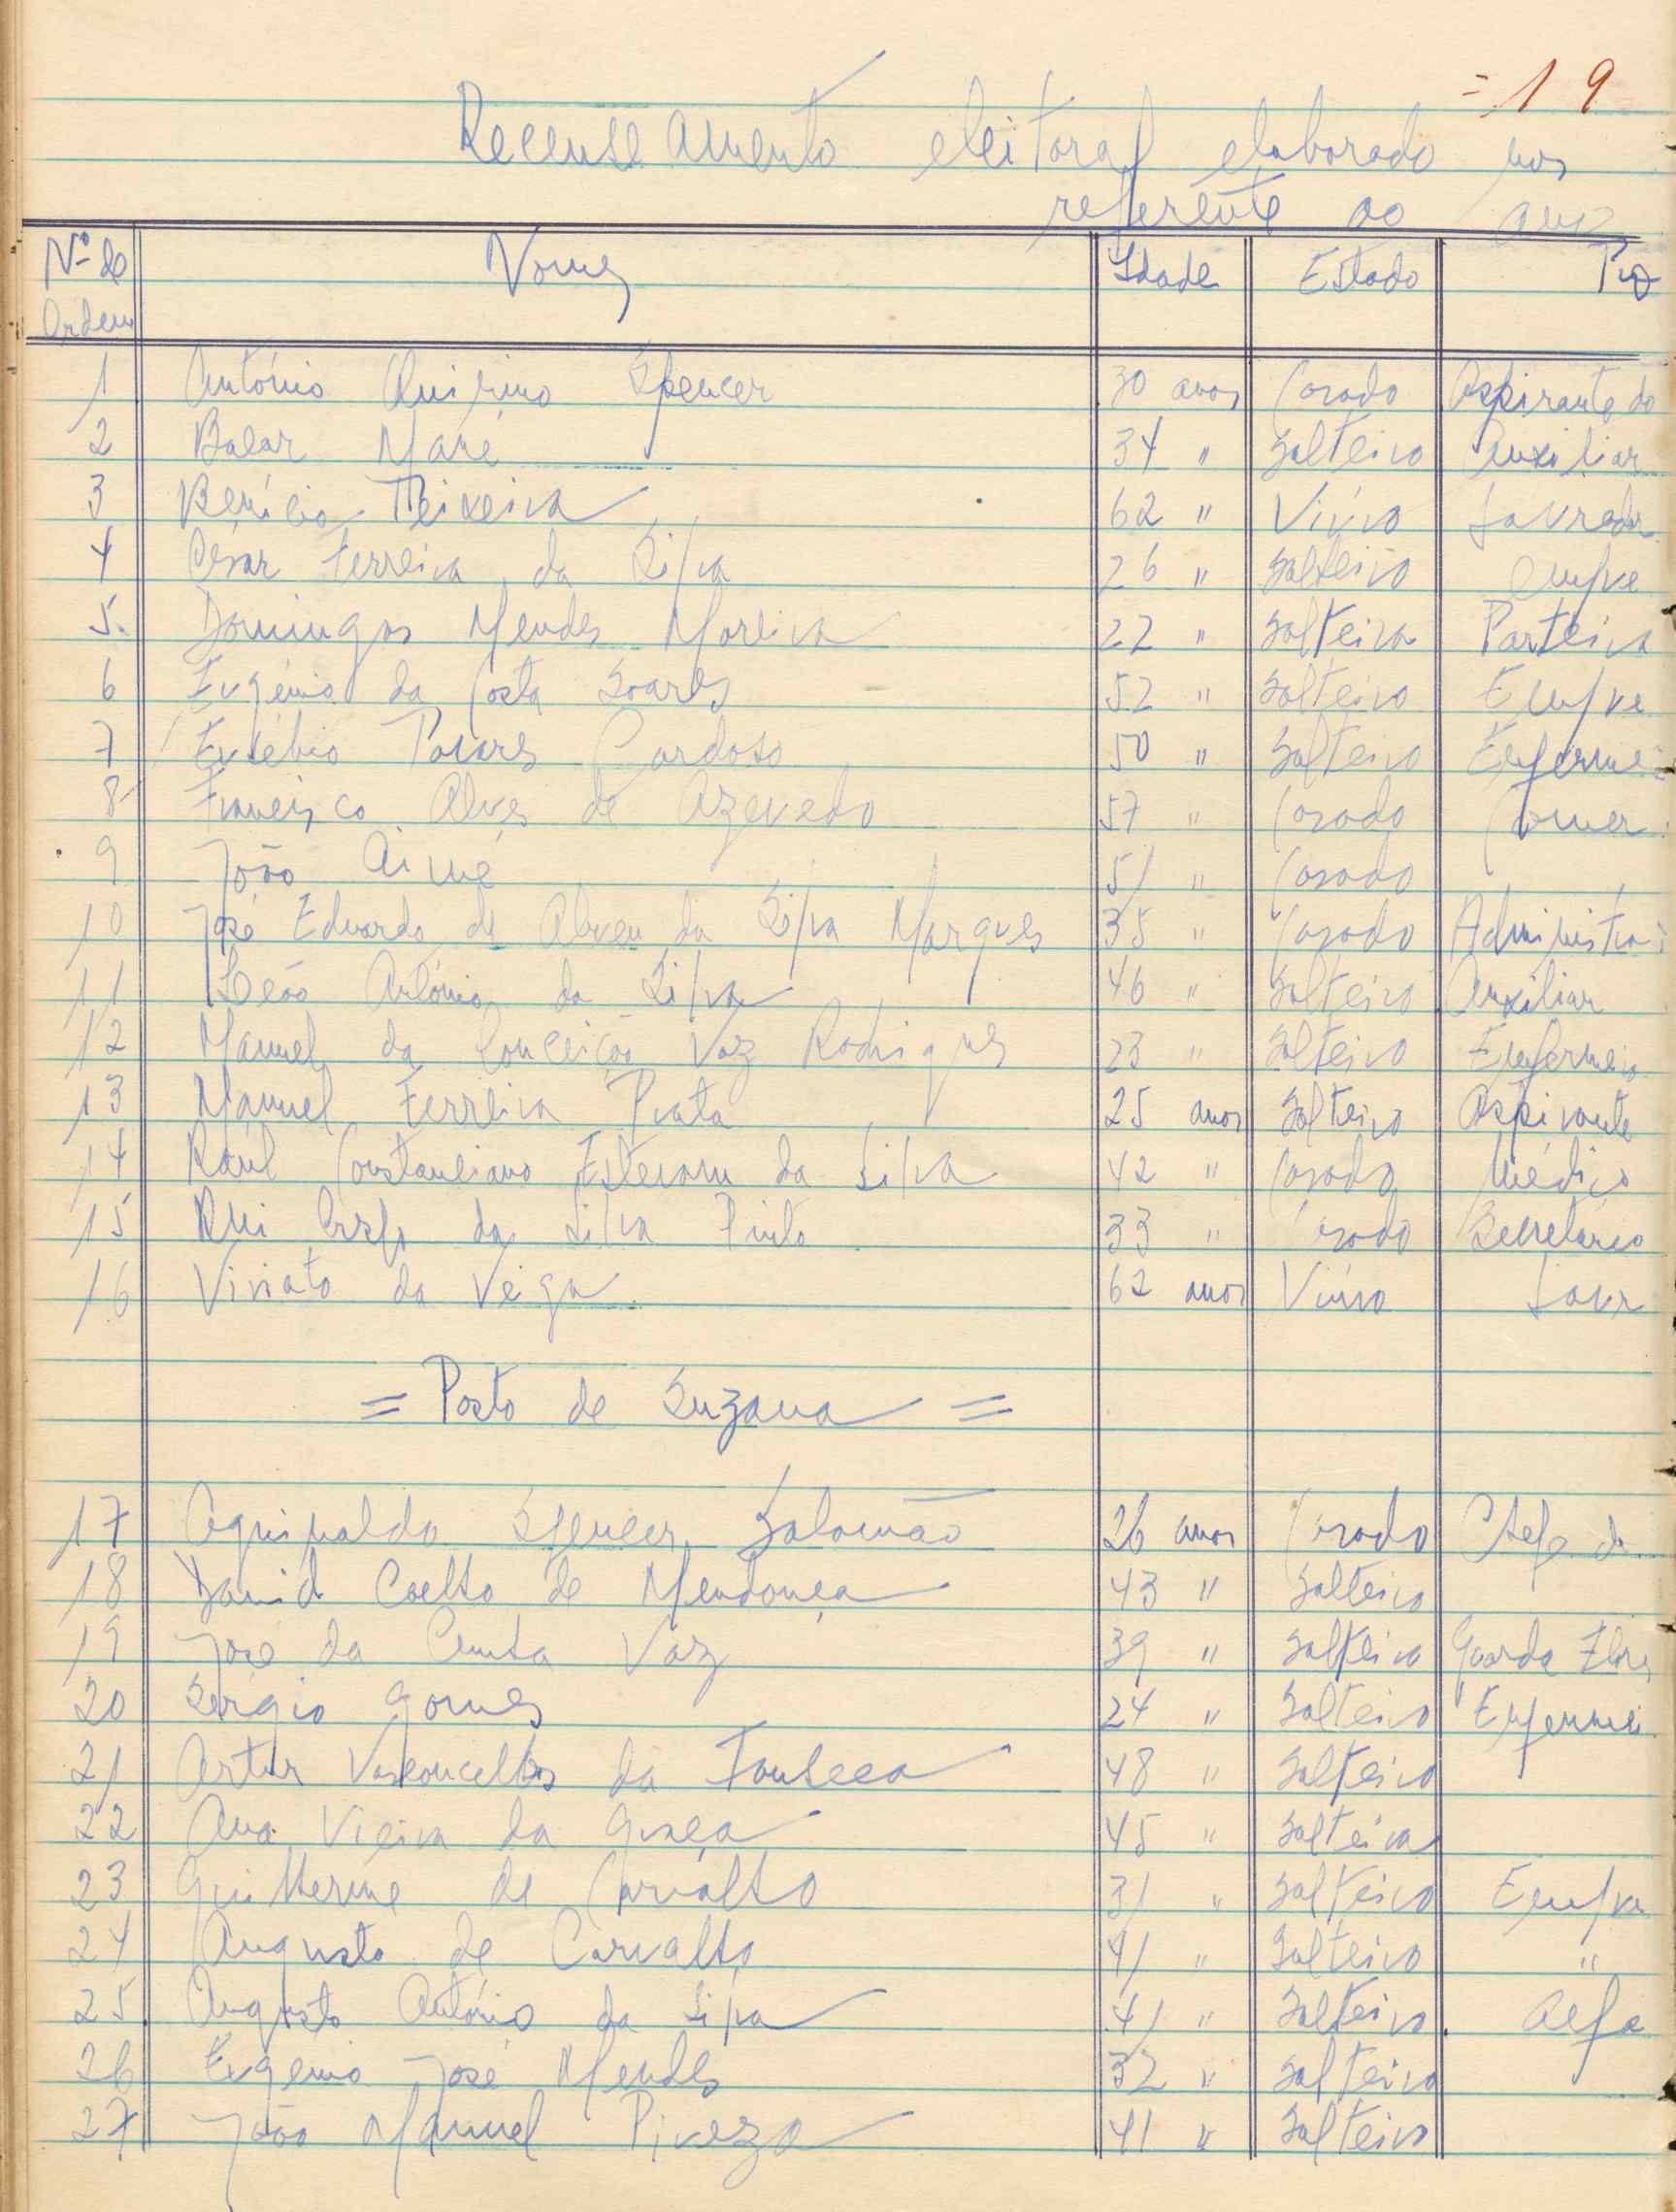 = 19
Recenseamento eleitoral elaborado nos
referente ao ano
Nº de Ordem Nomes Idade Estado Pro
1 António Quirino Spencer 30 anos Casado Aspirante do
2 Balar Mané 34 " Solteiro Auxiliar
3 Benício Teixeira 62 " Viúvo Lavrador
4 César Ferreira da Silva 26 " Solteiro Empre
5 Domingas Mendes Moreira 22 " Solteira Parteira
6 Eugénio da Costa Soares 52 " Solteiro Empre
7 Eusébio Tavares Cardoso 50 " Solteiro Enfermei
8 Francisco Alves de Azevedo 57 " Casado Comer
9 João Aimé 51 " Casado "
10 José Eduardo de Abreu da Silva Marques 35 " Casado Administra
11 Leão António da Silva 46 " Solteiro Auxiliar
12 Manuel da Conceição Vaz Rodrigues 23 " Solteiro Enfermeiro
13 Manuel Ferreira Prata 25 anos Solteiro Aspirante
14 Raúl Constanciano Estevam da Silva 42 " Casado Médico
15 Rui da Silva Pinto 33 " Casado Secretário
16 Viriato da Veiga 62 anos Viúvo Lavr
= Posto de Suzana =
17 Aguinaldo Spencer Salomão 26 anos Casado Chefe de
18 David Coelho de Mendonça 43 " Solteiro
19 José da Cunha Vaz 39 " Solteiro Guarda Flores
20 Sérgio Gomes 24 " Solteiro Enfermei
21 Artur Vasconcelhos da Fonseca 48 " Solteiro
22 Ana Vieira da Graça 45 " Solteira
23 Guilherme de Carvalho 31 " Solteiro Empre
24 Augusto de Carvalho 41 " Solteiro "
25 Augusto António da Silva 41 " Solteiro Alfa
26 Eugénio José Mendes 32 " Solteiro
27 João Manuel 41 " Solteiro